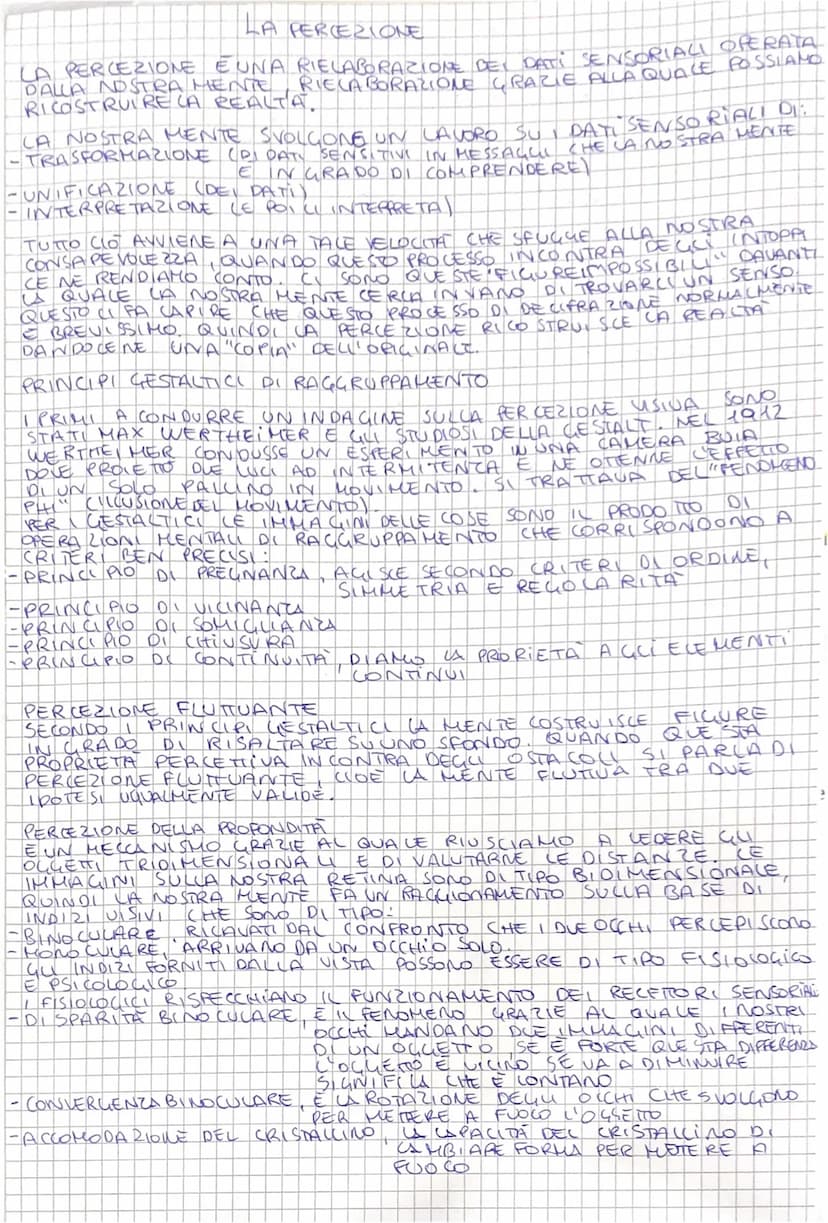 LA PERCEZIONE
LA PERCEZIONE È UNA RIELABORAZIONE DEI DATI SENSORIALI OPERATA
DALLA NOSTRA MENTE, RIELABORAZIONE GRAZIE ALLA QUALE POSSIAMO
RICOSTRUIRE LA REALTÀ.
LA NOSTRA MENTE SVOLGONE UN LAVORO SU I DATI SENSORIALI DI:
- TRASFORMAZIONE (DI DATI SENSITIVI IN MESSAGGI CHE LA NOSTRA MENTE
È IN GRADO DI COMPRENDERE)
- UNIFICAZIONE (DEI DATI)
- INTERPRETAZIONE (E POI LI INTERPRETA)
TUTTO CIÒ AVVIENE A UNA TALE VELOCITÀ CHE SFUGGE ALLA NOSTRA
CONSAPEVOLEZZA, QUANDO QUESTO PROCESSO INCONTRA DEGLI INTOPPI
CE NE RENDIAMO CONTO. CI SONO QUESTE "FIGURE IMPOSSIBILI" DAVANTI
LA QUALE LA NOSTRA MENTE CERCA INVANO DI TROVARCI UN SENSO.
QUESTO CI FA CAPIRE CHE QUESTO PROCESSO DI DECIFRAZIONE NORMALMENTE
È BREVISSIMO. QUINDI LA PERCEZIONE RICOSTRUISCE LA REALTÀ
DANDOCENE UNA "COPIA" DELL'ORIGINALE.
PRINCIPI GESTALTICI DI RAGGRUPPAMENTO
I PRIMI A CONDURRE UN INDAGINE SULLA PERCEZIONE VISIVA SONO
STATI MAX WERTHEIMER E GLI STUDIOSI DELLA GESTALT. NEL 1912
WERTHEIMER CONDUSSE UN ESPERIMENTO IN UNA CAMERA BUIA
DOVE PROIETTÒ DUE LUCI AD INTERMITENZA E NE OTTENNE L'EFFETTO
DI UN SOLO PALLINO IN MOVIMENTO. SI TRATTAVA DEL "FENOMENO
PHI" (ILLUSIONE DEL MOVIMENTO).
PER I GESTALTICI LE IMMAGINI DELLE COSE SONO IL PRODOTTO DI
OPERAZIONI MENTALI DI RAGGRUPPAMENTO CHE CORRISPONDONO A
CRITERI BEN PRECISI:
- PRINCIPIO DI PREGNANZA, AGISCE SECONDO CRITERI DI ORDINE,
SIMMETRIA E REGOLARITÀ
- PRINCIPIO DI VICINANZA
- PRINCIPIO DI SOMIGLIANZA
- PRINCIPIO DI CHIUSURA
- PRINCIPIO DI CONTINUITÀ, DIAMO LA PRORIETÀ AGLI ELEMENTI
CONTINUI
PERCEZIONE FLUTTUANTE
SECONDO I PRINCIPI GESTALTICI LA MENTE COSTRUISCE FIGURE
IN GRADO DI RISALTARE SU UNO SFONDO. QUANDO QUESTA
PROPRIETÀ PERCETTIVA INCONTRA DEGLI OSTACOLI SI PARLA DI
PERCEZIONE FLUTTUANTE, CIOÈ LA MENTE FLUTTUA TRA DUE
IPOTESI UGUALMENTE VALIDE.
PERCEZIONE DELLA PROFONDITÀ
È UN MECCANISMO GRAZIE AL QUALE RIUSCIAMO A VEDERE GLI
OGGETTI TRIDIMENSIONALI E DI VALUTARNE LE DISTANZE. LE
IMMAGINI SULLA NOSTRA RETINA SONO DI TIPO BIDIMENSIONALE,
QUINDI LA NOSTRA MENTE FA UN RAGGIONAMENTO SULLA BASE DI
INDIZI VISIVI CHE SONO DI TIPO:
- BINOCULARE, RICAVATI DAL CONFRONTO CHE I DUE OCCHI PERCEPISCONO
- MONOCULARE, ARRIVANO DA UN OCCHIO SOLO.
GLI INDIZI FORNITI DALLA VISTA POSSONO ESSERE DI TIPO FISIOLOGICO
E PSICOLOGICO
I FISIOLOGICI RISPECCHIANO IL FUNZIONAMENTO DEI RECETTORI SENSORIALI
- DISPARITÀ BINOCULARE, È IL FENOMENO GRAZIE AL QUALE I NOSTRI
OCCHI MANDANO DUE IMMAGINI DIFFERENTI
DI UN OGGETTO, SE È FORTE QUESTA DIFFERENZA
L'OGGETTO È VICINO SE VA A DIMINUIRE
SIGNIFICA CHE È LONTANO
- CONVERGENZA BINOCULARE, È LA ROTAZIONE DEGLI OCCHI CHE SVOLGONO
PER METTERE A FUOCO L'OGGETTO
- ACCOMODAZIONE DEL CRISTALLINO, LA CAPACITÀ DEL CRISTALLINO DI
CAMBIARE FORMA PER METTERE A
FUOCO